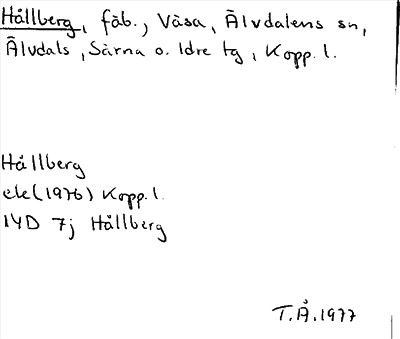 Hållberg, fäb., Våsa, Älvdalens sn,
Älvdals, Särna o. Idre tg, Kopp. l.
Hållberg
ele (1976) Kopp. l.
14D 7j Hållberg
T.Å. 1977